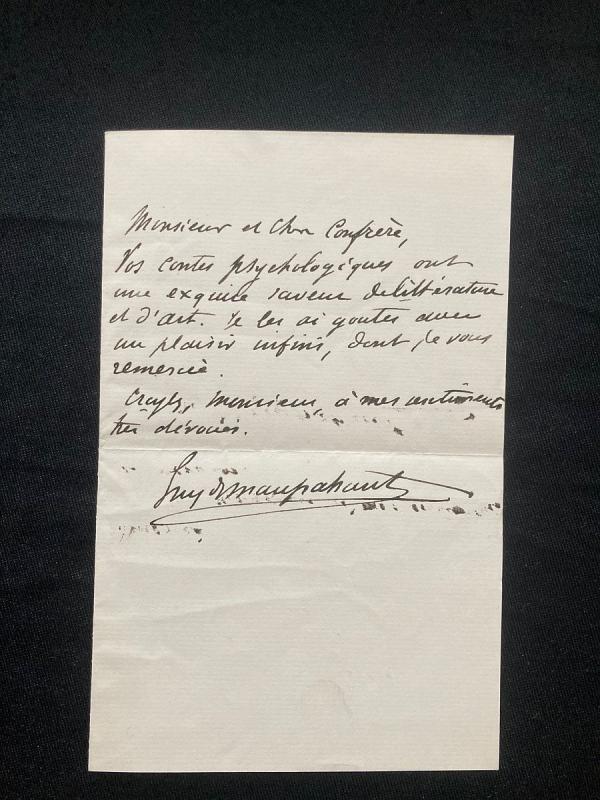 Monsieur et Cher Confrère,
Vos contes psychologiques ont
une exquise saveur de littérature
et d'art. Je les ai goutés avec
un plaisir infini, dont je vous
remercie.
Croyez, Monsieur, à mes sentiments
très dévoués.
Guy de Maupassant